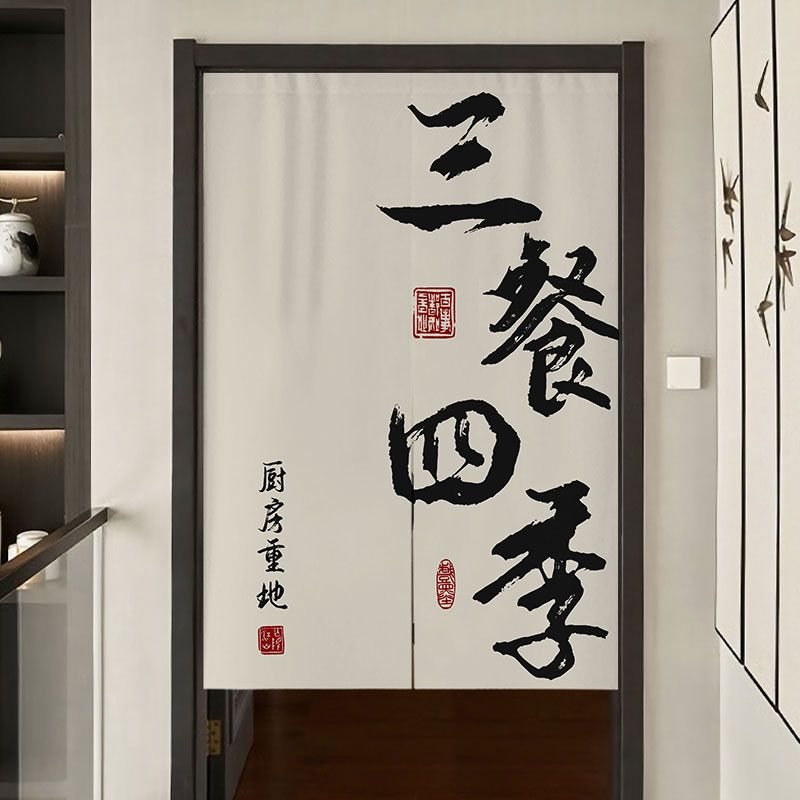 三餐四季
厨房重地